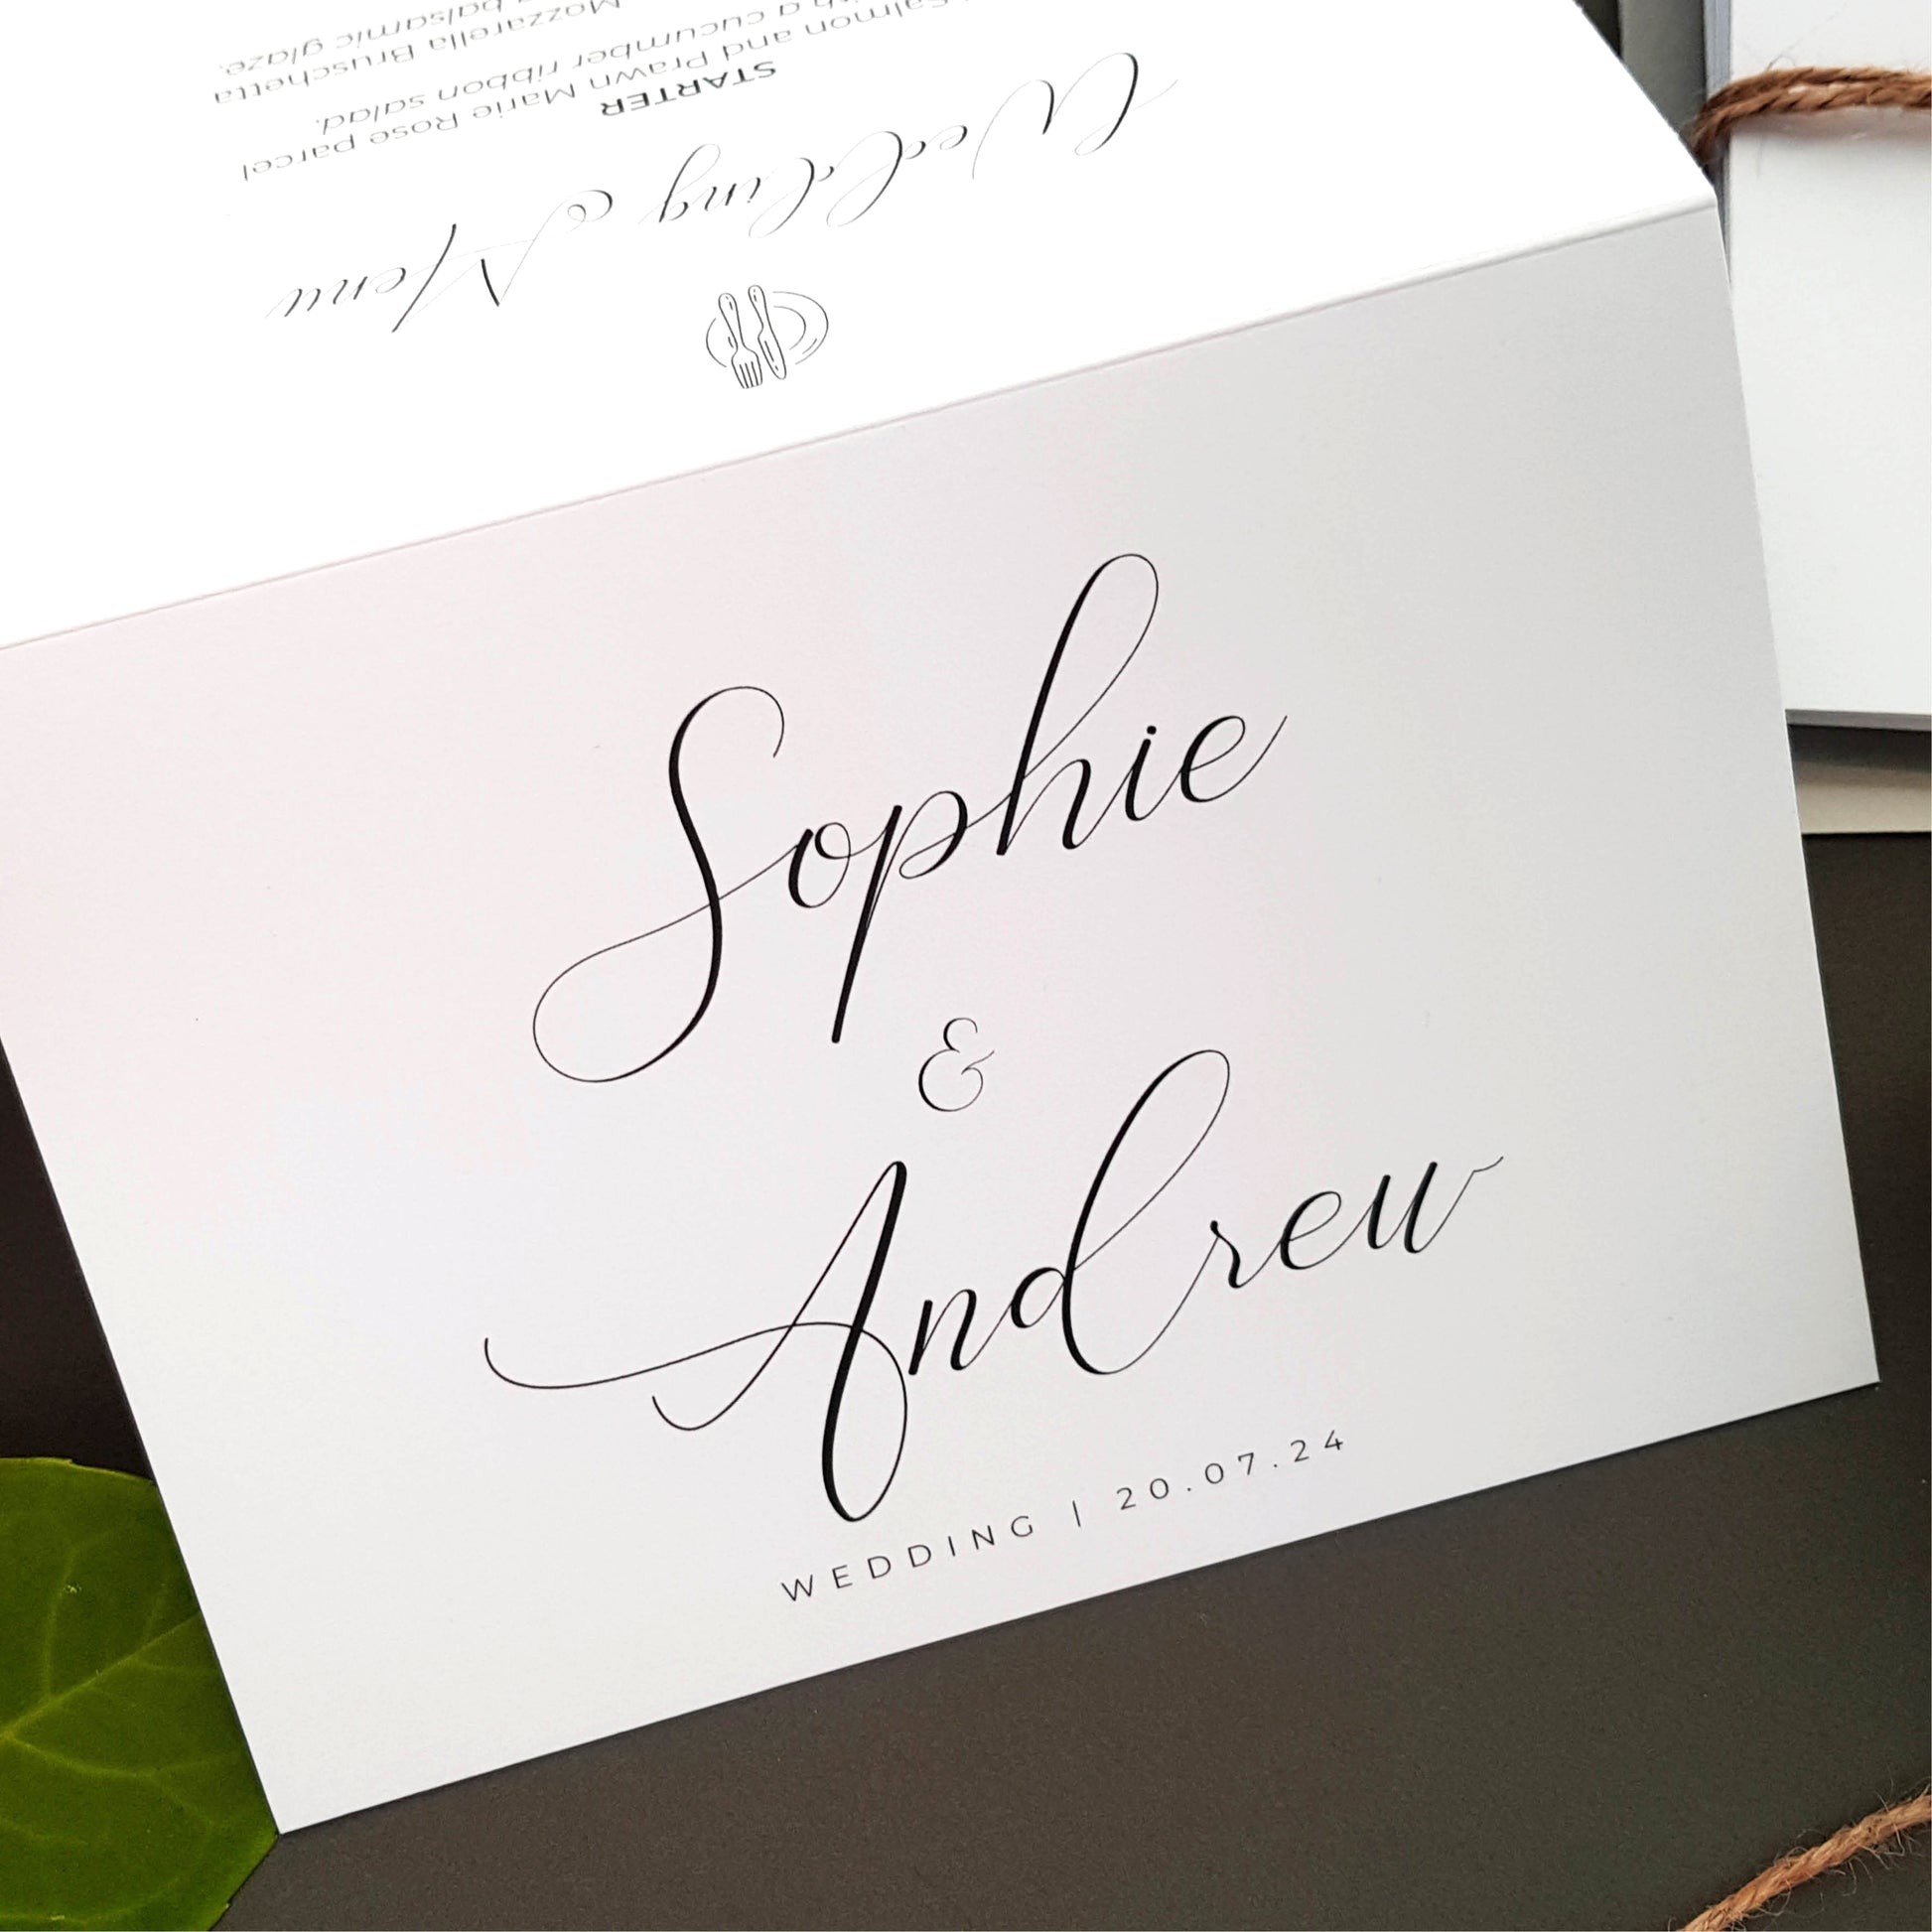 Sophie
&
Andrew
WEDDING | 20.07.24
Wedding Menu
STARTER
Salmon and Prawn Marie Rose parcel
a cucumber ribbon salad.
Mozzarella Bruschetta
balsamic glaze.